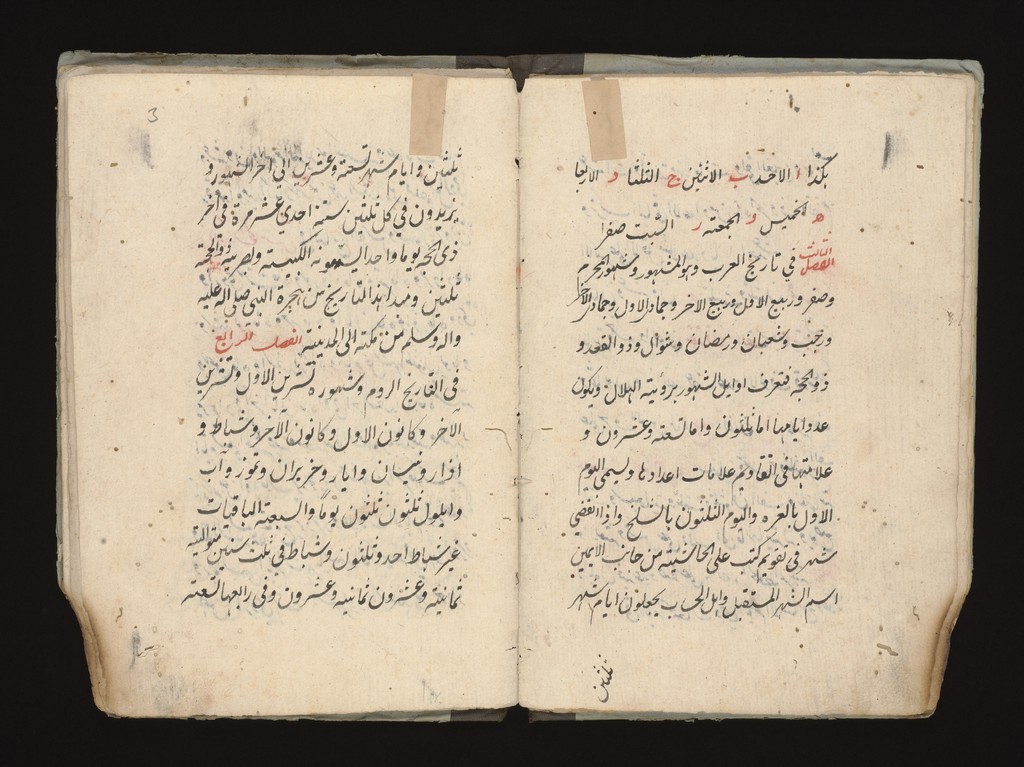 هكذا ا الاحد ب الاثنين ج الثلثا د الاربعا
ه الخميس و الجمعته ز السبت صفرا
الفصل الثالث في تاريخ العرب وهو المشهور وشهوره المحرم
وصفر وربيع الاول وربيع الاخر وجمادى الاول وجمادى الاخر
ورجب وشعبان ورمضان وشوال وذو القعد و
ذوالحجه فتعرف اوايل الشهور بروئيته الهلال ويكون
عدد ايامها اما ثلثون واما تسعته وعشرون و
علامتها في التقاويم علامات اعدادها ويسمى اليوم
الاول بالغره واليوم الثلثون بالسلخ واذا انقضى
شهر في تقويم كتب على الحاشيته من جانب الايمين
اسم الشهر المستقبل واهل الحساب يجعلون ايام شهر
ثلثين
3
ثلثين وايام شهر تسعته وعشرين الي اخر الشهور و
يزيدون في كل ثلثين سنته احدي عشر مرة في اخر
ذى الحجه يوما واحدا الكبيسته ذوالحجته
ثلثين ومبدا هذا التاريخ من هجرة النبي صلى اله عليه
واله وسلم من مكته الى المدينته الفصل الرابع
في التاريخ الروم وشهوره تشرين الاول وتشرين
الآخر وكانون الاول وكانون الآخر وشباط و
اذار ونيسان وايار وحزيران وتموز وآب
وايلول ثلثون ثلثون يوماً والسبعته الباقيات
غير شباط احد وثلثون وشباط في ثلث سنين متواليته
ثمانيته وعشرون ثمانيه وعشرون وفي رابعها تسعته